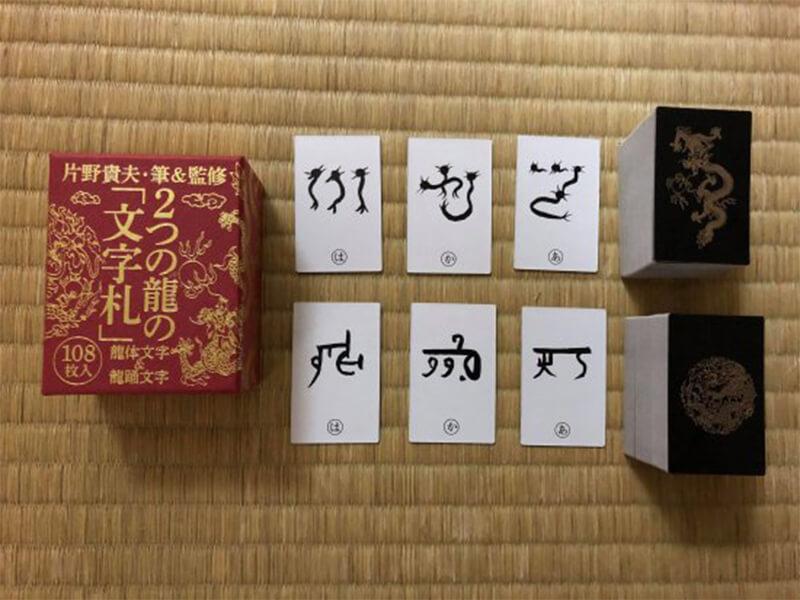 片野貴夫・筆&監修
2つの龍の
「文字札」
108
枚入
龍体文字
&
龍踊文字
は
か
あ
は
か
あ